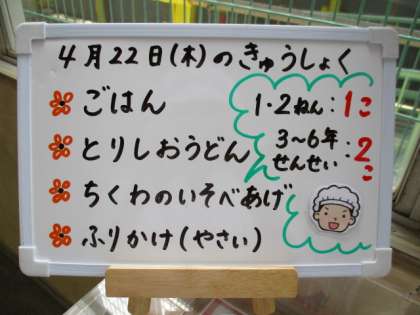 4月22日(木)のきゅうしょく
ごはん
とりしおうどん
ちくわのいそべあげ
ふりかけ(やさい)
1・2ねん:1こ
3〜6年
せんせい:2こ